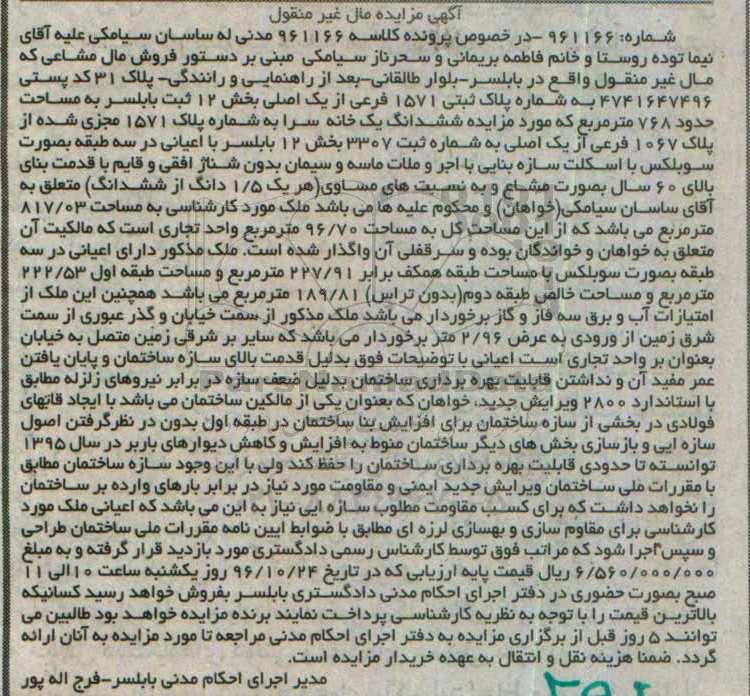 آگهی مزایده مال غیر منقول
شماره: ۹۶۱۱۶۶ -در خصوص پرونده کلاسه ۹۶۱۱۶۶ مدنی له ساسان سیامکی علیه آقای
نیما توده روستا و خانم فاطمه بریمانی و سحرناز سیامکی مبنی بر دستور فروش مال مشاعی که
مال غیر منقول واقع در بابلسر-بلوار طالقانی-بعد از راهنمایی و رانندگی- پلاک ۳۱ کد پستی
۴۷۴۱۶۴۷۴۹۶ به شماره پلاک ثبتی ۱۵۷۱ فرعی از یک اصلی بخش ۱۲ ثبت بابلسر به مساحت
حدود ۷۶۸ مترمربع که مورد مزایده ششدانگ یک خانه سرا به شماره پلاک ۱۵۷۱ مجزی شده از
پلاک ۱۰۶۷ فرعی از یک اصلی به شماره ثبت ۳۳۰۷ بخش ۱۲ بابلسر با اعیانی در سه طبقه بصورت
سوبلکس با اسکلت سازه بنایی با اجر و ملات ماسه و سیمان بدون شناژ افقی و قایم با قدمت بنای
بالای ۶۰ سال بصورت مشاع و به نسبت های مساوی(هر یک ۱/۵ دانگ از ششدانگ) متعلق به
آقای ساسان سیامکی(خواهان) و محکوم علیه ها می باشد ملک مورد کارشناسی به مساحت ۸۱۷/۰۳
مترمربع می باشد که از این مساحت کل به مساحت ۹۶/۷۰ مترمربع واحد تجاری است که مالکیت آن
متعلق به خواهان و خواندگان بوده و سرقفلی آن واگذار شده است. ملک مذکور دارای اعیانی در سه
طبقه بصورت سوبلکس با مساحت طبقه همکف برابر ۲۲۷/۹۱ مترمربع و مساحت طبقه اول ۲۲۲/۵۳
مترمربع و مساحت خالص طبقه دوم(بدون تراس) ۱۸۹/۸۱ مترمربع می باشد همچنین این ملک از
امتیازات آب و برق سه فاز و گاز برخوردار می باشد ملک مذکور از سمت خیابان و گذر عبوری از سمت
شرق زمین از ورودی به عرض ۲/۹۶ متر برخوردار می باشد که سایر بر شرقی زمین متصل به خیابان
بعنوان بر واحد تجاری است اعیانی با توضیحات فوق بدلیل قدمت بالای سازه ساختمان و پایان یافتن
عمر مفید آن و نداشتن قابلیت بهره برداری ساختمان بدلیل ضعف سازه در برابر نیروهای زلزله مطابق
با استاندارد ۲۸۰۰ ویرایش جدید، خواهان که بعنوان یکی از مالکین ساختمان می باشد با ایجاد قابهای
فولادی در بخشی از سازه ساختمان برای افزایش بنا ساختمان در طبقه اول بدون در نظرگرفتن اصول
سازه ایی و بازسازی بخش های دیگر ساختمان منوط به افزایش و کاهش دیوارهای باربر در سال ۱۳۹۵
توانسته تا حدودی قابلیت بهره برداری ساختمان را حفظ کند ولی با این وجود سازه ساختمان مطابق
با مقررات ملی ساختمان ویرایش جدید ایمنی و مقاومت مورد نیاز در برابر بارهای وارده بر ساختمان
را نخواهد داشت که برای کسب مقاومت مطلوب سازه ایی نیاز به این می باشد که اعیانی ملک مورد
کارشناسی برای مقاوم سازی و بهسازی لرزه ای مطابق با ضوابط ایین نامه مقررات ملی ساختمان طراحی
و سپس اجرا شود که مراتب فوق توسط کارشناس رسمی دادگستری مورد بازدید قرار گرفته و به مبلغ
۶/۵۶۰/۰۰۰/۰۰۰ ریال قیمت پایه ارزیابی که در تاریخ ۹۶/۱۰/۲۴ روز یکشنبه ساعت ۱۰ الی ۱۱
صبح بصورت حضوری در دفتر اجرای احکام مدنی دادگستری بابلسر بفروش خواهد رسید کسانیکه
بالاترین قیمت را با توجه به نظریه کارشناسی پرداخت نمایند برنده مزایده خواهد بود طالبین می
توانند ۵ روز قبل از برگزاری مزایده به دفتر اجرای احکام مدنی مراجعه تا مورد مزایده به آنان ارائه
گردد. ضمنا هزینه نقل و انتقال به عهده خریدار مزایده است.
مدیر اجرای احکام مدنی بابلسر-فرج اله پور